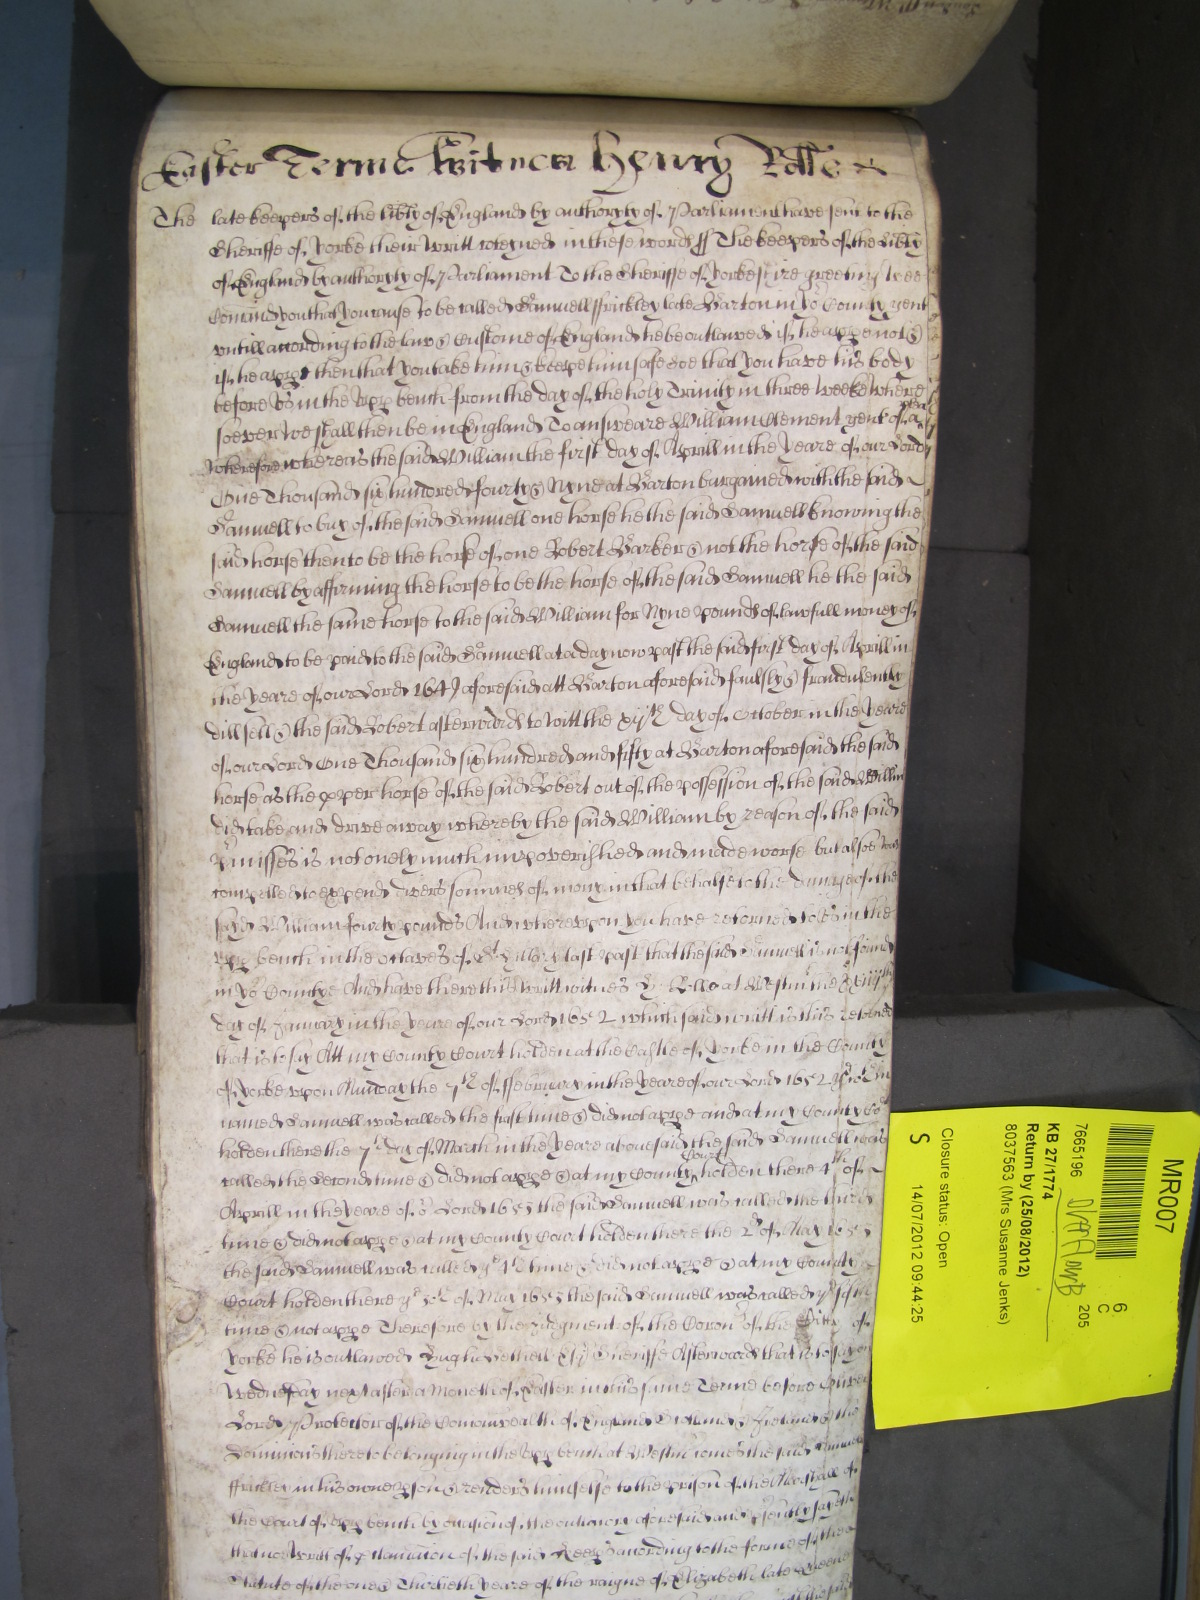 Easter Terme Witnes Henry Rolle
The late keepers of the libty of England by authoryty of Parliament have sent to the
Sheriffe of Yorke their writt closed in these words ss The keepers of the libty
of England by authoryty of Parliament To the Sheriffe of Yorkeshire greeting wee
Comand you that you cause to be called Samuell Frickley late Barton in yor County gent
untill according to the law & Custome of England he be outlawed if he appe not &
if he appe then that you take him & keepe him safe soe that you have his body
before us in the upp bench from the day of the holy Trinity in three weeks where
soever we shall then be in England To answeare William Clement gent of a plea
wherefore whereas the said William the first day of Aprill in the yeare of our Lord
One Thousand six hundred fourty & Nyne at Barton bargained with the said
Samuell to buy of the said Samuell one horse he the said Samuell knowing the
said horse then to be the horse of one Robert Barker & not the horse of the said
Samuell by affirming the horse to be the horse of the said Samuell he the said
Samuell the same horse to the said William for Nyne pounds of lawfull money of
England to be paid to the said Samuell at a day now past the said first day of Aprill in
the yeare of our Lord 1649 aforesaid att Barton aforesaid faulsly & fraudulently
did sell & the said Robert afterwards to witt the xijth day of October in the yeare
of our Lord One Thousand six hundred and fifty at Barton aforesaid the said
horse as the pper horse of the said Robert out of the possession of the said Willm
did take and drive away whereby the said William by reason of the said
pmisses is not onely much impoverished and made worse but alsoe was
compelled to expend divers sommes of mony in that behalfe to the damage of the
said William fourty pounds And whereupon you have retorned to us in the
upp bench in the octaves of St Hillary last past that the said Samuell is not found
in yor County And have there this writt witnes H Rolle at Westm the xxiijth
day of January in the yeare of our Lord 1652 which said writt is thus retorned
that is to say Att my County Court holden at the Castle of Yorke in the County
of Yorke upon Munday the 7th of ffebruary in the yeare of our Lord 1652 the within
named Samuell was called the first time & did not appe and at my County Cort
holden there the 7th day of March in the yeare abovesaid the said Samuell was
called the second time & did not appe & at my County Court holden there 4th of
Aprill in the yeare of or Lord 1653 the said Samuell was called the third
time & did not appe & at my County Court holden there the 2d of May 1653
the said Samuell was called ye 4th time & did not appe & at my County
Court holden there ye 30th of May 1653 the said Samuell was called ye fifth
time & not appe Therefore by the Judgment of the Coron of the Citty of
Yorke he is outlawed Hugh Bethell Esqr Sheriffe Afterwards that is to say on
Wednesday next after a Moneth of Easter in this same Terme before Oliver
Lord Protector of the Comonwealth of England Scotland & Ireland & the
Dominions thereto belonging in the upp bench at Westm comes the said Samuell
ffrickley in his owne pson & renders himselfe to the prison of the Marshall of
the Court of upp bench by occasion of the outlawry aforesaid and psently sayeth
that noe Writt of pclamacion of the said Keeps according to the forme of the
Statute of the one & Thirtieth yeare of the raigne of Elizabeth late Queene
MR007
6
C
205
7665196
KB 27/1774
Return by (25/08/2012)
8037563 (Mrs Susanne Jenks)
Closure status: Open
S 14/07/2012 09:44:25